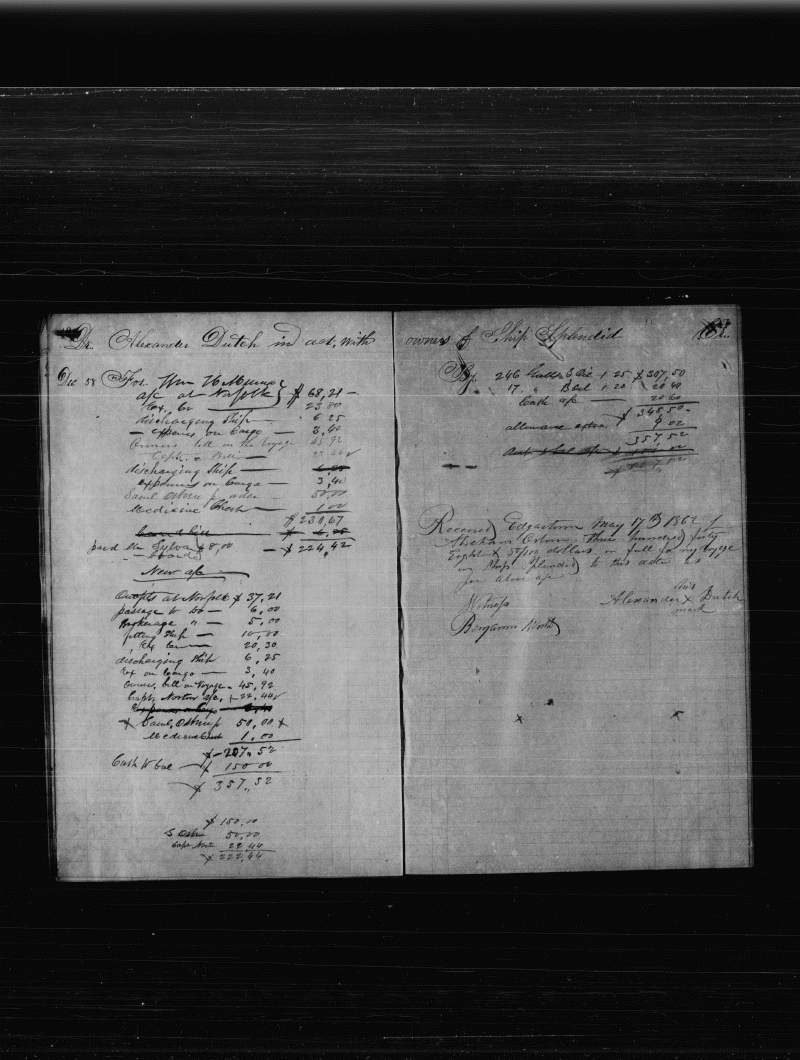 Dr Alexander Dutch in act, with
Dec 58 For Wm H
a/c at Norfolk $ 68,21
23 80
discharging Ship 6 25
expenses on Cargo 3,40
Owners bill on the Voyage 45 92
Capt.
discharging Ship
expenses on Cargo 3,40
Saml Osborn Jr order 50,00
Medicine Chest 1 00
$ 230,67
paid 8,00 $ 224,42
New a/c
at Norfolk $ 37,21
passage to Do 6,00
Brokerage " 5,00
fitting Ship 10,00
Ex 20,30
discharging Ship 6,25
Ex on Cargo 3,40
Owners bill on Voyage 45,92
Capt. Norton a/c, 22,44
X Saml, Osborn Jr 50,00 X
Medicine Chest 1,00
$ 207,52
Cash to bal $ 150 00
$ 357,52
$ 150,00
S Osborn 50,00
Capt Norton 22 44
$ 222,44
owners of Ship Splendid Cr.
By 246 Galls S Oil 1 25 $ 307,50
17 " 1 20 20 40
Cash a/c 20 60
$ 348,50
allowance extra 9 02
357,52
Received Edgartown May 17 1862 of
Abraham Osborn three hundred forty
Eight & 50/100 dollars in full for my voyge
in Ship Splendid to this date as
per above a/c
Witness
his
Alexander X Dutch
mark
Benjamin Worth